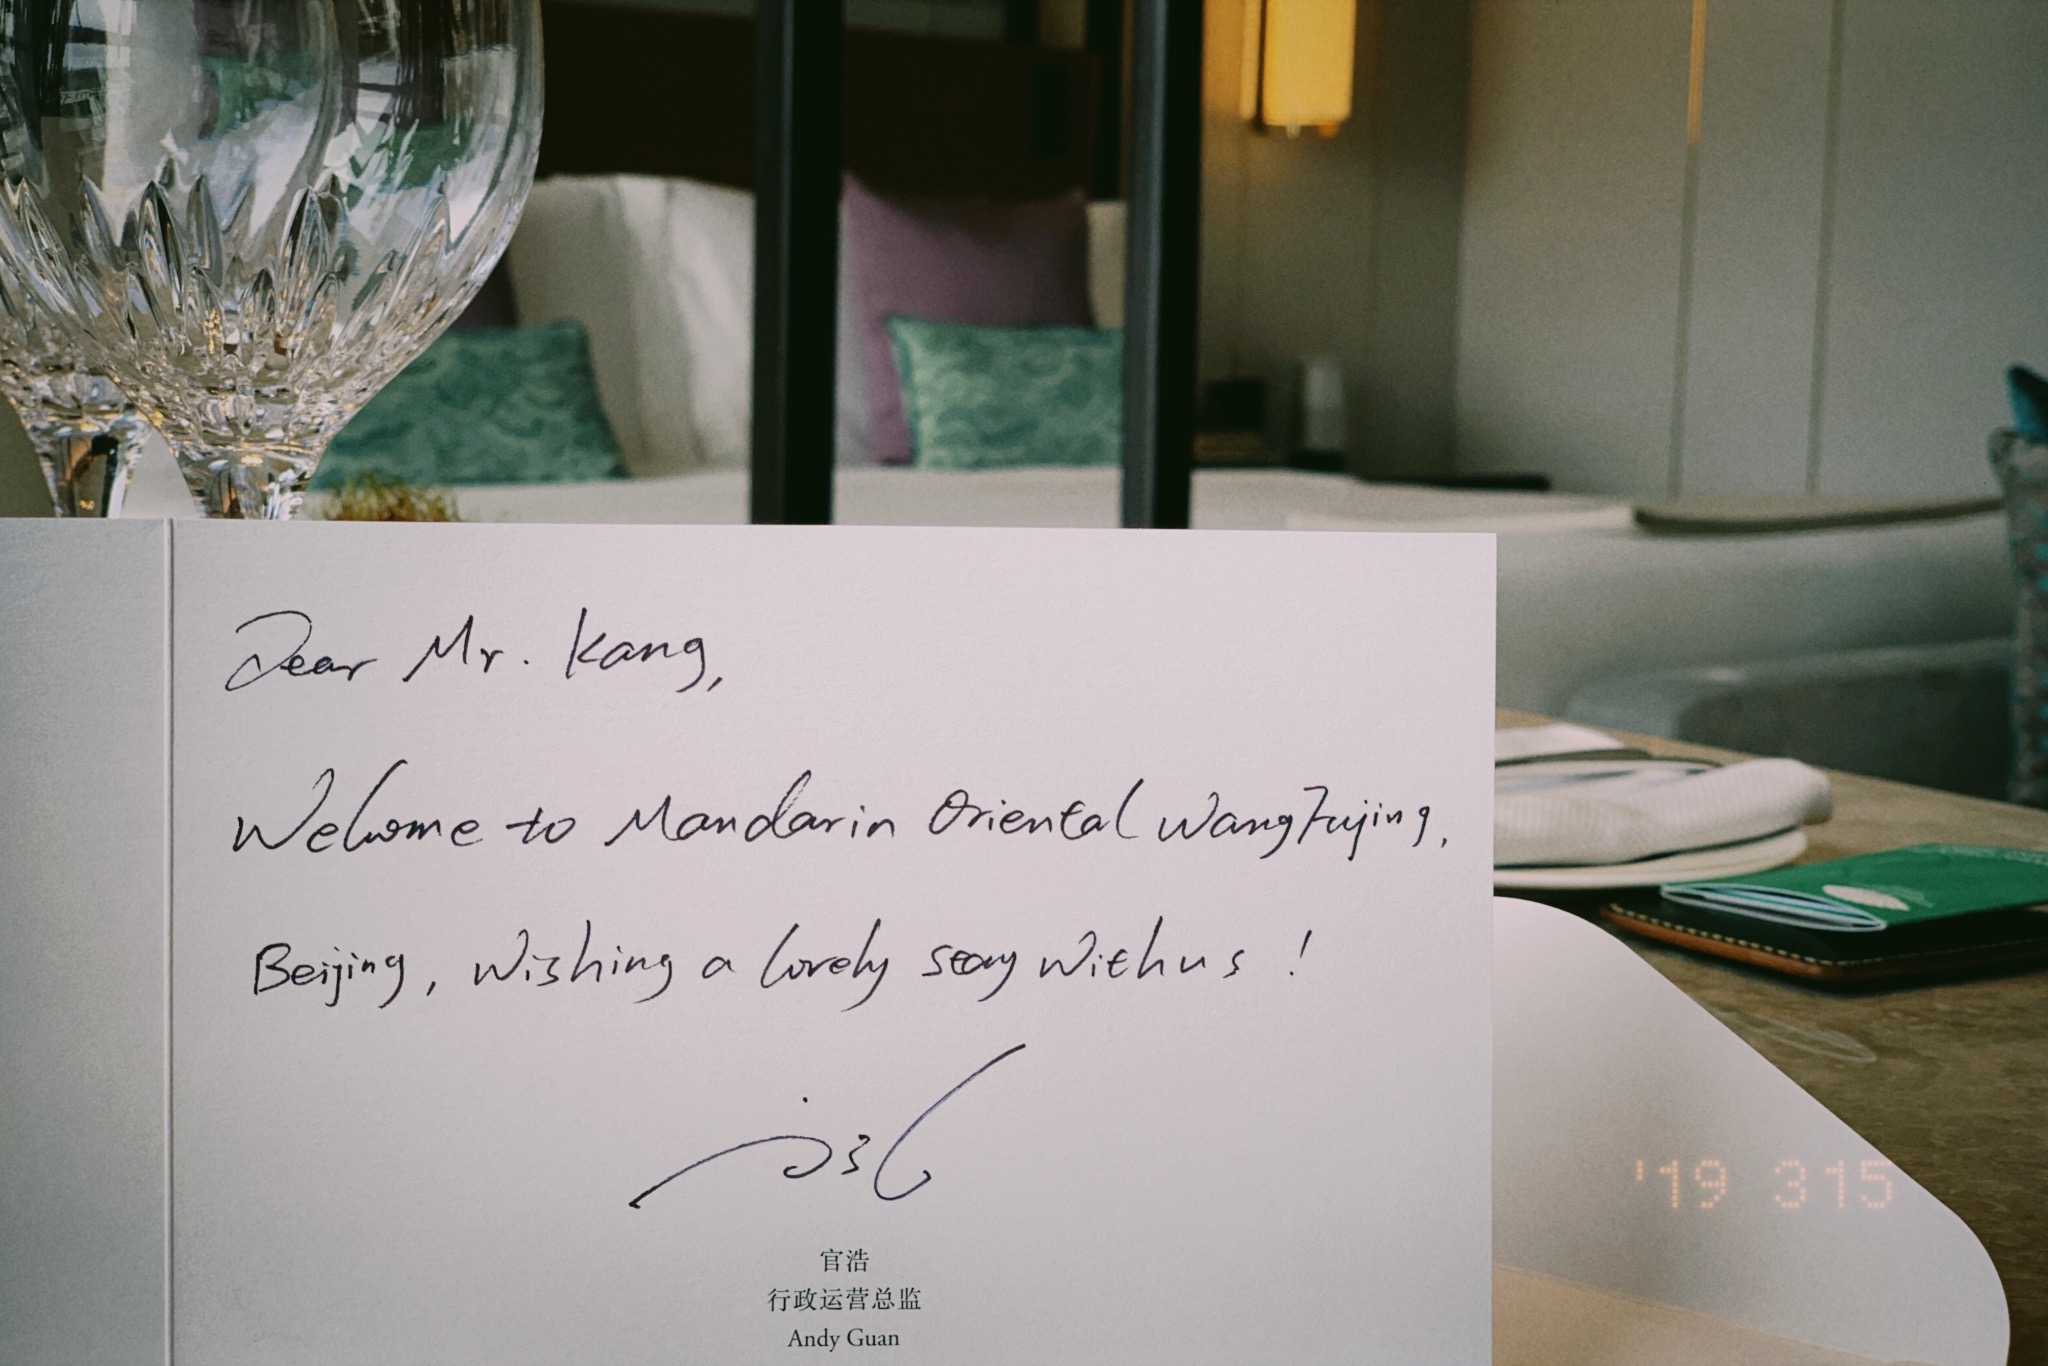 Dear Mr. Kang,
Welcome to Mandarin Oriental Wangfujing,
Beijing, wishing a lovely stay with us !
官浩
行政运营总监
Andy Guan
'19 3 15